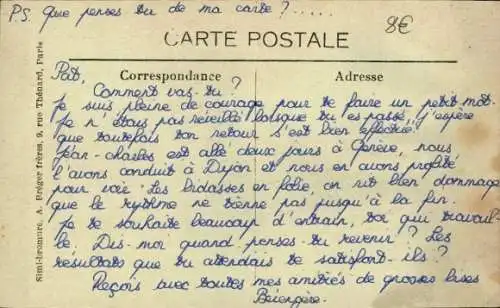 P.S. Que penses tu de ma carte ? .....
8€
CARTE POSTALE
Correspondance
Adresse
Pat,
Comment vas-tu ?
Je suis pleine de courage pour te faire un petit mot.
Je n'étais pas réveillé lorsque tu es passé. J'espère
que toutefois ton retour s'est bien effectué.
Jean-charles est allé deux jours à Genève, nous
l'avons conduit à Dijon et nous en avons profité
pour voir "Les bidasses en folie, on rit bien dommage
que le rythme ne tienne pas jusqu'à la fin.
Je te souhaite beaucoup d'entrain, toi qui travail-
le. Dis-moi quand penses-tu revenir ? Les
résultats que tu attendais te satisfont-ils ?
Reçois avec toutes mes amitiés de grosses bises
Bérengère.
Simil-bromure. A. Bréger frères, 9, rue Thénard, Paris